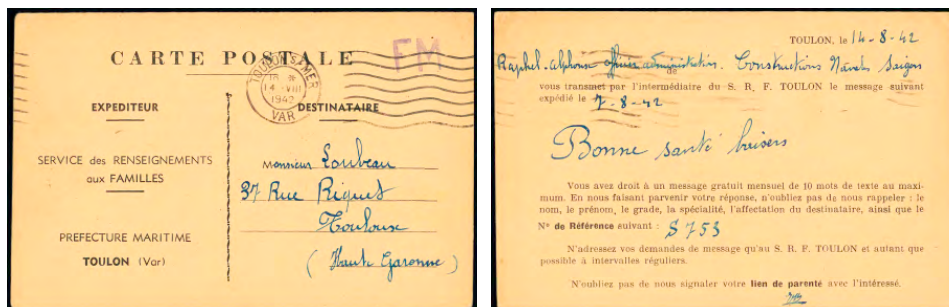 CARTE POSTALE
FM
TOULON S MER
18 H
14 VIII
1942
VAR
EXPEDITEUR
DESTINATAIRE
SERVICE des RENSEIGNEMENTS
aux FAMILLES
PREFECTURE MARITIME
TOULON (Var)
Monsieur Loubeau
37 Rue Riquet
Toulouse
(Haute Garonne)
TOULON, le 14-8-42
Raphel-Alphonse officier administration. Constructions Navales Saigon
de
vous transmet par l'intermédiaire du S. R. F. TOULON le message suivant
expédié le 7-8-42
Bonne santé baisers
Vous avez droit à un message gratuit mensuel de 10 mots de texte au maxi-
mum. En nous faisant parvenir votre réponse, n'oubliez pas de nous rappeler : le
nom, le prénom, le grade, la spécialité, l'affectation du destinataire, ainsi que le
N° de Référence suivant : S 753
N'adressez vos demandes de message qu'au S. R. F. TOULON et autant que
possible à intervalles réguliers.
N'oubliez pas de nous signaler votre lien de parenté avec l'intéressé.